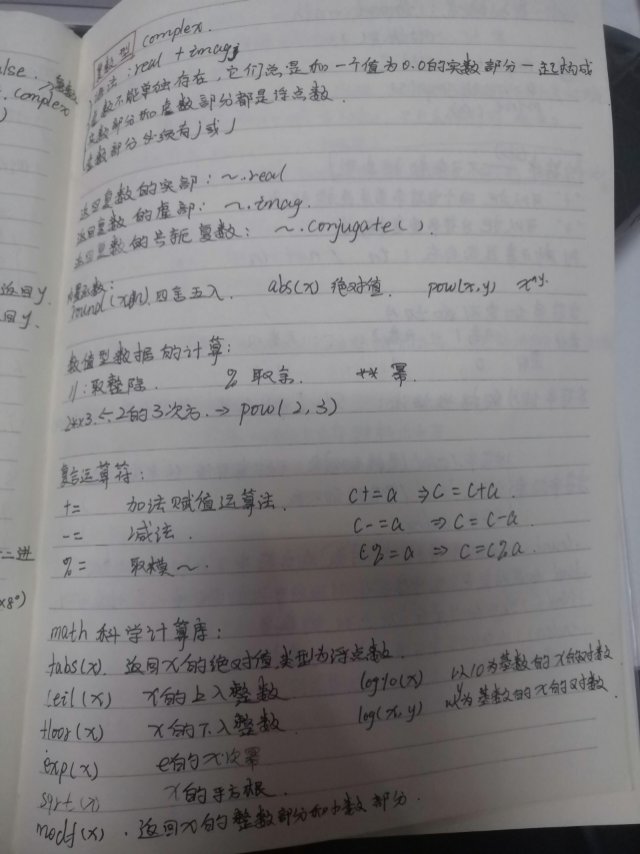 alse.
复数
complex
)
返回y
回y.
二进
x8⁰)
复数型 complex.
语法: real + imagj
虚数不能单独存在,它们总是和一个值为0.0的实数部分一起构成
实数部分和虚数部分都是浮点数.
虚数部分后缀有j或J
返回复数的实部: ~.real
返回复数的虚部: ~.imag.
返回复数的共轭复数: ~.conjugate().
round(x[,n]). 四舍五入. abs(x) 绝对值. pow(x,y) x^y.
数值型数据的计算:
//:取整除. % 取余. ** 幂.
2**3.⇔2的3次方. → pow(2,3)
复合运算符:
+= 加法赋值运算法. c+=a ⇒ c=c+a.
-= 减法. c-=a ⇒ c=c-a.
%= 取模~. c%=a ⇒ c=c%a.
math 科学计算库:
fabs(x). 返回x的绝对值,类型为浮点数.
ceil(x) x的上入整数 log10(x) 以10为基数的x的对数
floor(x) x的下入整数. log(x,y) 以y为基数的x的对数.
exp(x) e的x次幂
sqrt(x) x的平方根.
modf(x). 返回x的整数部分和小数部分.